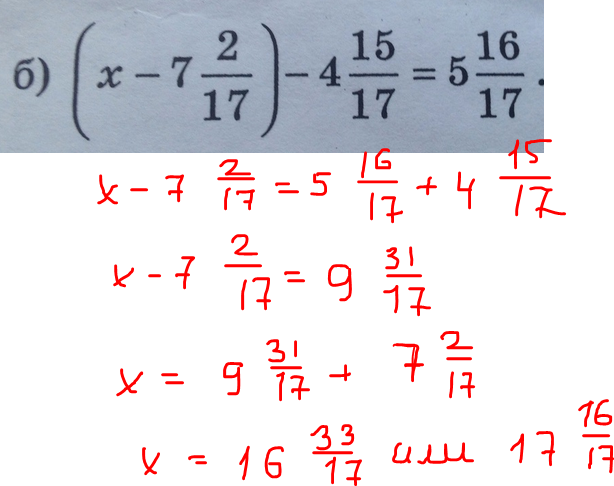 б) (x − 7 2/17) − 4 15/17 = 5 16/17.
x − 7 2/17 = 5 16/17 + 4 15/17
x − 7 2/17 = 9 31/17
x = 9 31/17 + 7 2/17
x = 16 33/17 или 17 16/17